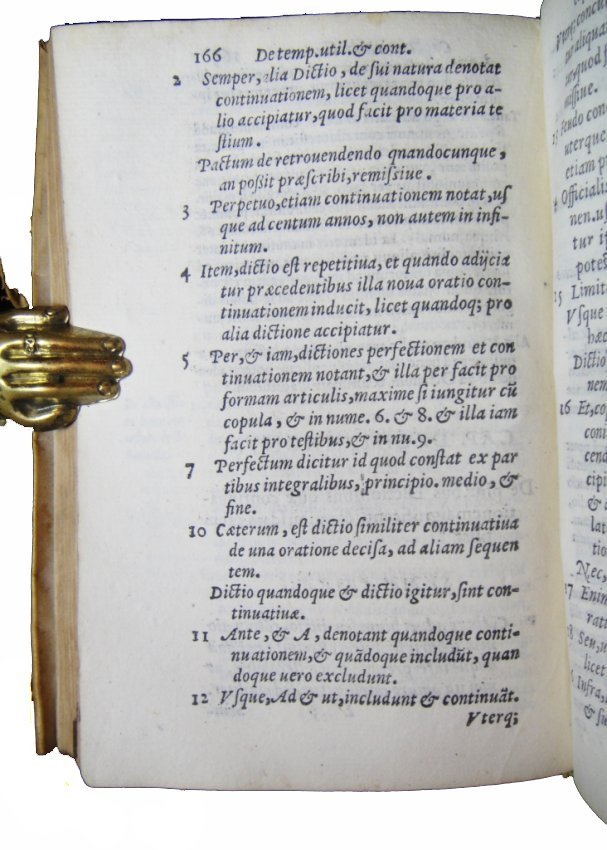 166 De temp. util. & cont.
2 Semper, alia Dictio, de sui natura denotat
continuationem, licet quandoque pro a-
lio accipiatur, quod facit pro materia te
stium.
Pactum de retrouendendo qnandocunque,
an poßit præscribi, remissiue.
3 Perpetuo, etiam continuationem notat, us
que ad centum annos, non autem in infi-
nitum.
4 Item, dictio est repetitiua, et quando adijcia
tur præcedentibus illa noua oratio con-
tinuationem inducit, licet quandoq; pro
alia dictione accipiatur.
5 Per, & iam, dictiones perfectionem et con
tinuationem notant, & illa per facit pro
formam articulis, maxime si iungitur cũ
copula, & in nume. 6. & 8. & illa iam
facit pro testibus, & in nu. 9.
7 Perfectum dicitur id quod constat ex par
tibus integralibus, principio. medio, &
fine.
10 Cæterum, est dictio similiter continuatiua
de una oratione decisa, ad aliam sequen
tem.
Dictio quandoque & dictio igitur, sint con-
tinuatiuæ.
11 Ante, & A, denotant quandoque conti-
nuationem, & quãdoque includũt, quan
doque uero excludunt.
12 Vsque, Ad & ut, includunt & continuãt.
Vterq;
aliqua
missiue.
uterque
etiam p
Officiali
nen. us
tur i
potes
15 Limit
Vsque
hæc
Dictio
nem
16 Et, co
conti
cend
cipi
& a
lat
tio
Nec,
17 Enim
rati
18 Seu, u
licet
Infra,
& su